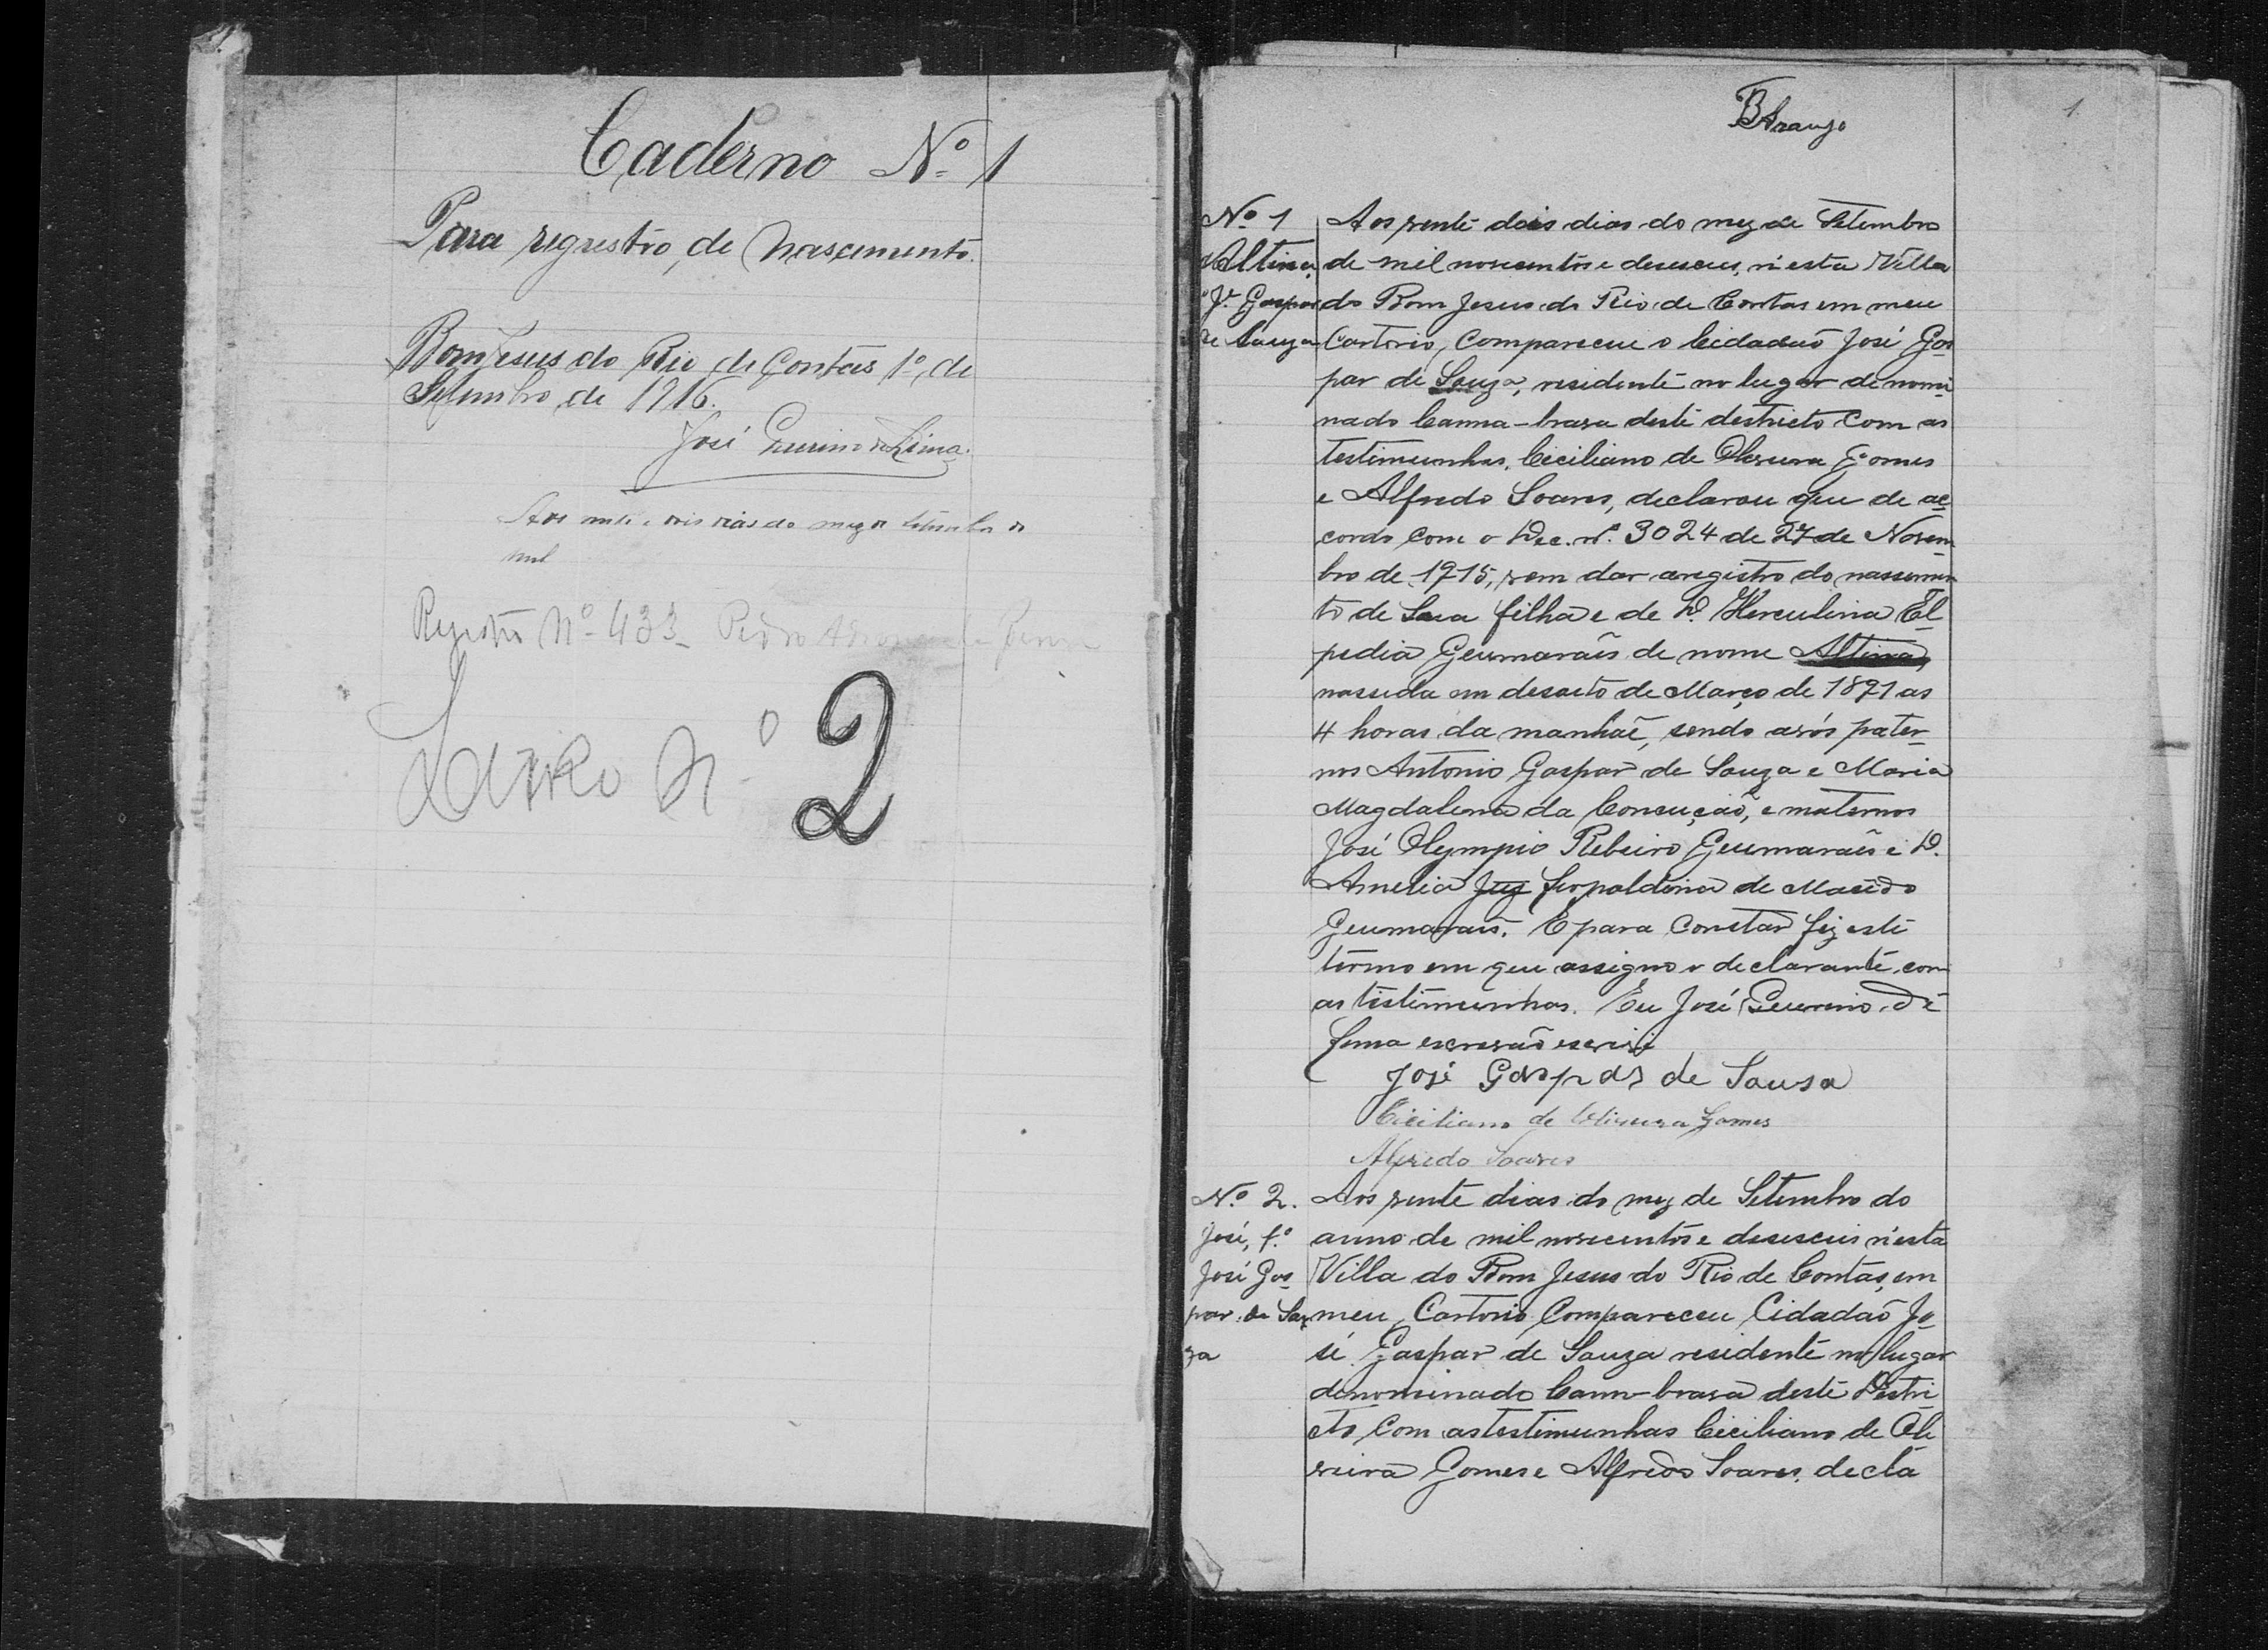 Caderno Nº 1
Para regrestro de Nascimento.
Bom Jesus do Rio de Contas 1º de
Setembro de 1916.
José Guirino de Lima.
Aos vinte e dois dias do mez de Setembro de
mil
Registro Nº 433 Pedro
Livro Nº 2
BAraujo
1
Nº 1
Altina,
fª Gaspar
de Souza
Aos vente dois dias do mez de Setembro
de mil novecentos e deseseus, n'esta Villa
do Bom Jesus do Rio de Contas em meu
Cartorio, Compareceu o Cidadaõ José Gas
par de Souza, residente no lugar denomi
nado Canna-brava deste destricto com as
testimunhas, Ciciliano de Oliveira Gomes
e Alfredo Soares, declarou que de ac
cordo com o Dec. nº. 3024 de 27 de Novem
bro de 1915, vem dar aregistro do nassemen
to de Sua filha e de D. Herculina El
pedia Geumarães de nome Altina,
nasseda em desoito de Março de 1891 as
4 horas da manhaẽ, sendo avós pater
nos Antonio Gaspar de Souza e Maria
Magdalena da Conceição, e maternos
José Olympio Rebeiro Geumarães e D.
Amelia Leopoldina de Macêdo
Geumarais. E para constar fiz este
termo em que assigno o declarante com
as testimunhas. Eu José Guereno de
Lima escrevaõ escrivi
José Gaspar de Sousa
Ciciliano de Oliveira Gomes
Alfredo Soares
Nº 2.
José, fº
José Gas
par de Sou
za
Aos vente dias do mez de Setembro do
anno de mil novecentos e deseseis n'esta
Villa do Bom Jesus do Rio de Contas, em
meu Cartorio, Compareceu Cidadaõ Jo
sé Gaspar de Souza residente no lugar
denominado Cann-brava deste Destri
cto, Com as testimunhas Ciciliano de Oli
veira Gomes e Alfredo Soares, decla